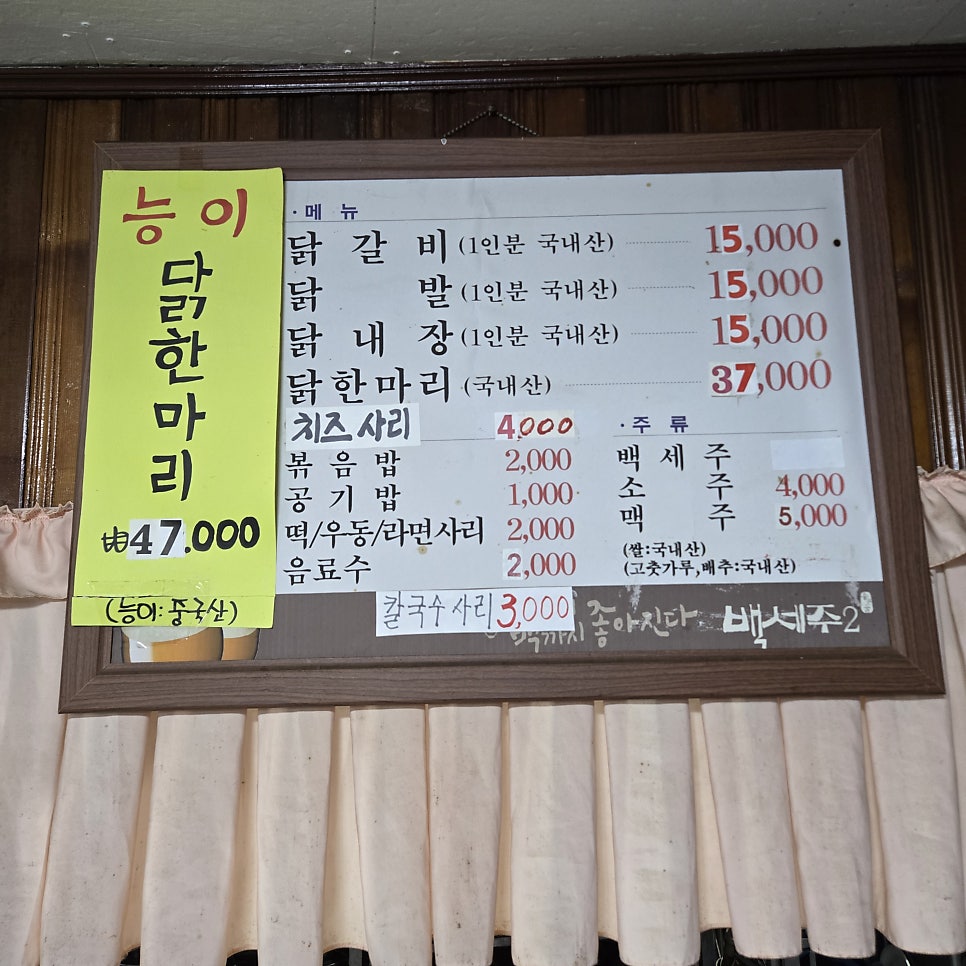 능이
닭한마리
₩47.000
(능이: 중국산)
· 메 뉴
닭 갈 비 (1인분 국내산) 15,000
닭 발 (1인분 국내산) 15,000
닭 내 장 (1인분 국내산) 15,000
닭한마리 (국내산) 37,000
치즈사리 4,000
볶 음 밥 2,000
공 기 밥 1,000
떡/우동/라면사리 2,000
음료수 2,000
칼국수사리 3,000
· 주 류
백 세 주
소 주 4,000
맥 주 5,000
(쌀:국내산)
(고춧가루,배추:국내산)
좋아진다
백세주2